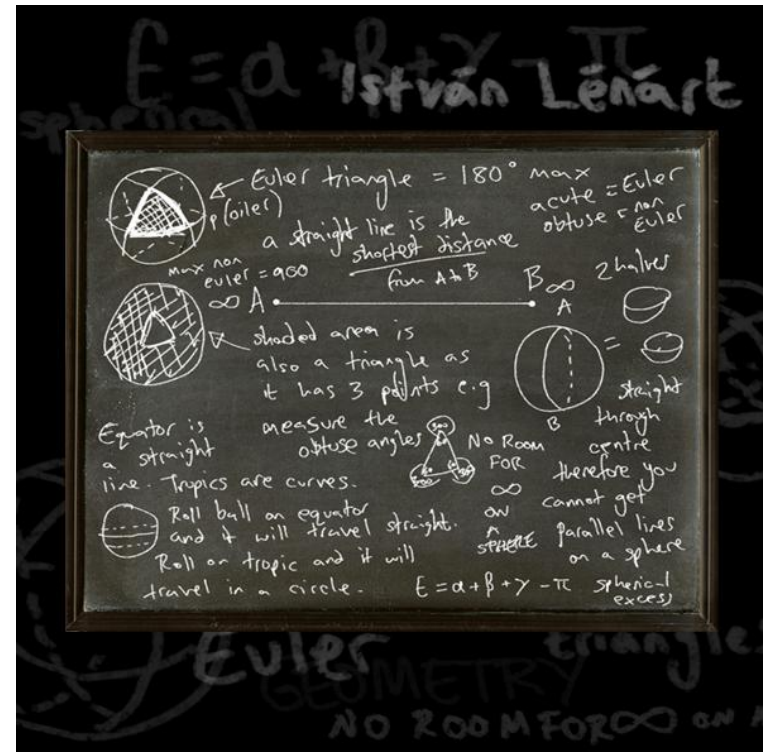 E = α + β + γ - π
István Lénárt
spherical
Euler triangle = 180° max
(oiler)
acute = Euler
obtuse = non
euler
a straight line is the
shortest distance
from A to B
max non
euler = 900
∞ A
B ∞
A
2 halves
=
B
shaded area is
also a triangle as
it has 3 points e.g
measure the
obtuse angles
300
60
60
60
300
300
Equator is
a straight
line. Tropics are curves.
Roll ball on equator
and it will travel straight.
Roll on tropic and it will
travel in a circle.
NO ROOM
FOR
∞
ON
A
SPHERE
straight
through
centre
therefore you
cannot get
parallel lines
on a sphere
E = α + β + γ - π spherical
excess
Euler
triangles
GEOMETRY
NO ROOM FOR ∞ ON A